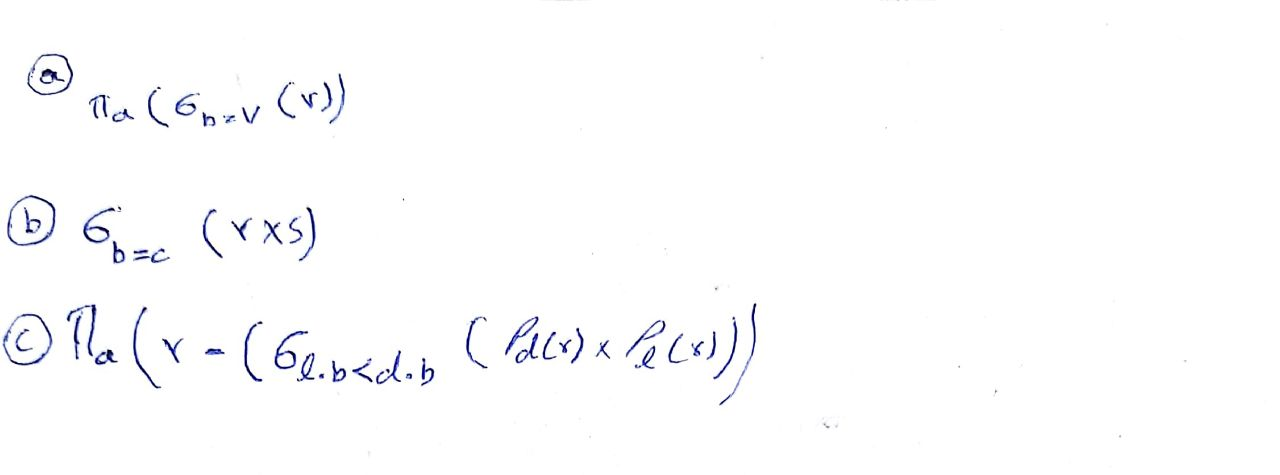 ⓐ πa (σb=v (r))
ⓑ σb=c (r×s)
ⓒ Πa (r - (σe.b<d.b (ρd(r) × ρe(r)))